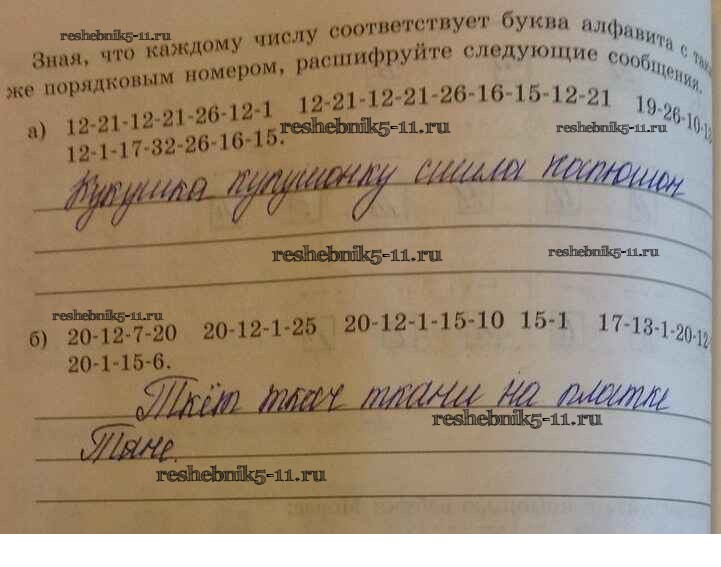 reshebnik5-11.ru
Зная, что каждому числу соответствует буква алфавита с так
же порядковым номером, расшифруйте следующие сообщения.
а) 12-21-12-21-26-12-1 12-21-12-21-26-16-15-12-21 19-26-10-1
reshebnik5-11.ru reshebnik5-11.ru
12-1-17-32-26-16-15.
Кукушка кукушонку сшила капюшон
reshebnik5-11.ru reshebnik5-11.ru
reshebnik5-11.ru
б) 20-12-7-20 20-12-1-25 20-12-1-15-10 15-1 17-13-1-20-12-
20-1-15-6.
Ткёт ткач ткани на платке
reshebnik5-11.ru
Тане.
reshebnik5-11.ru